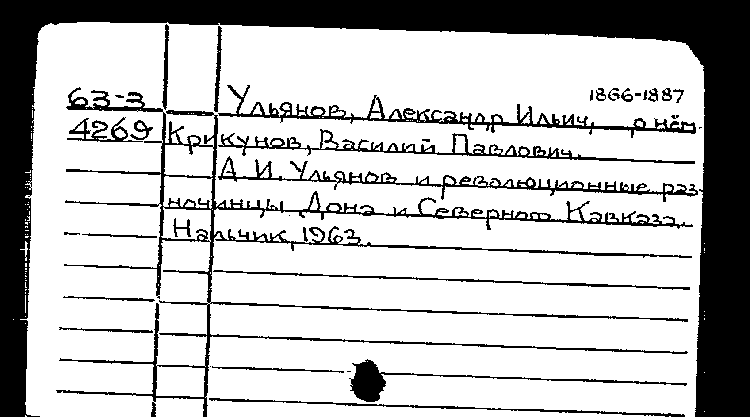 1866-1887
63-3 Ульянов, Александр Ильич, о нём
4269 Крикунов, Василий Павлович.
А.И. Ульянов и революционные раз-
ночинцы Дона и Северного Кавказа.
Нальчик, 1963.